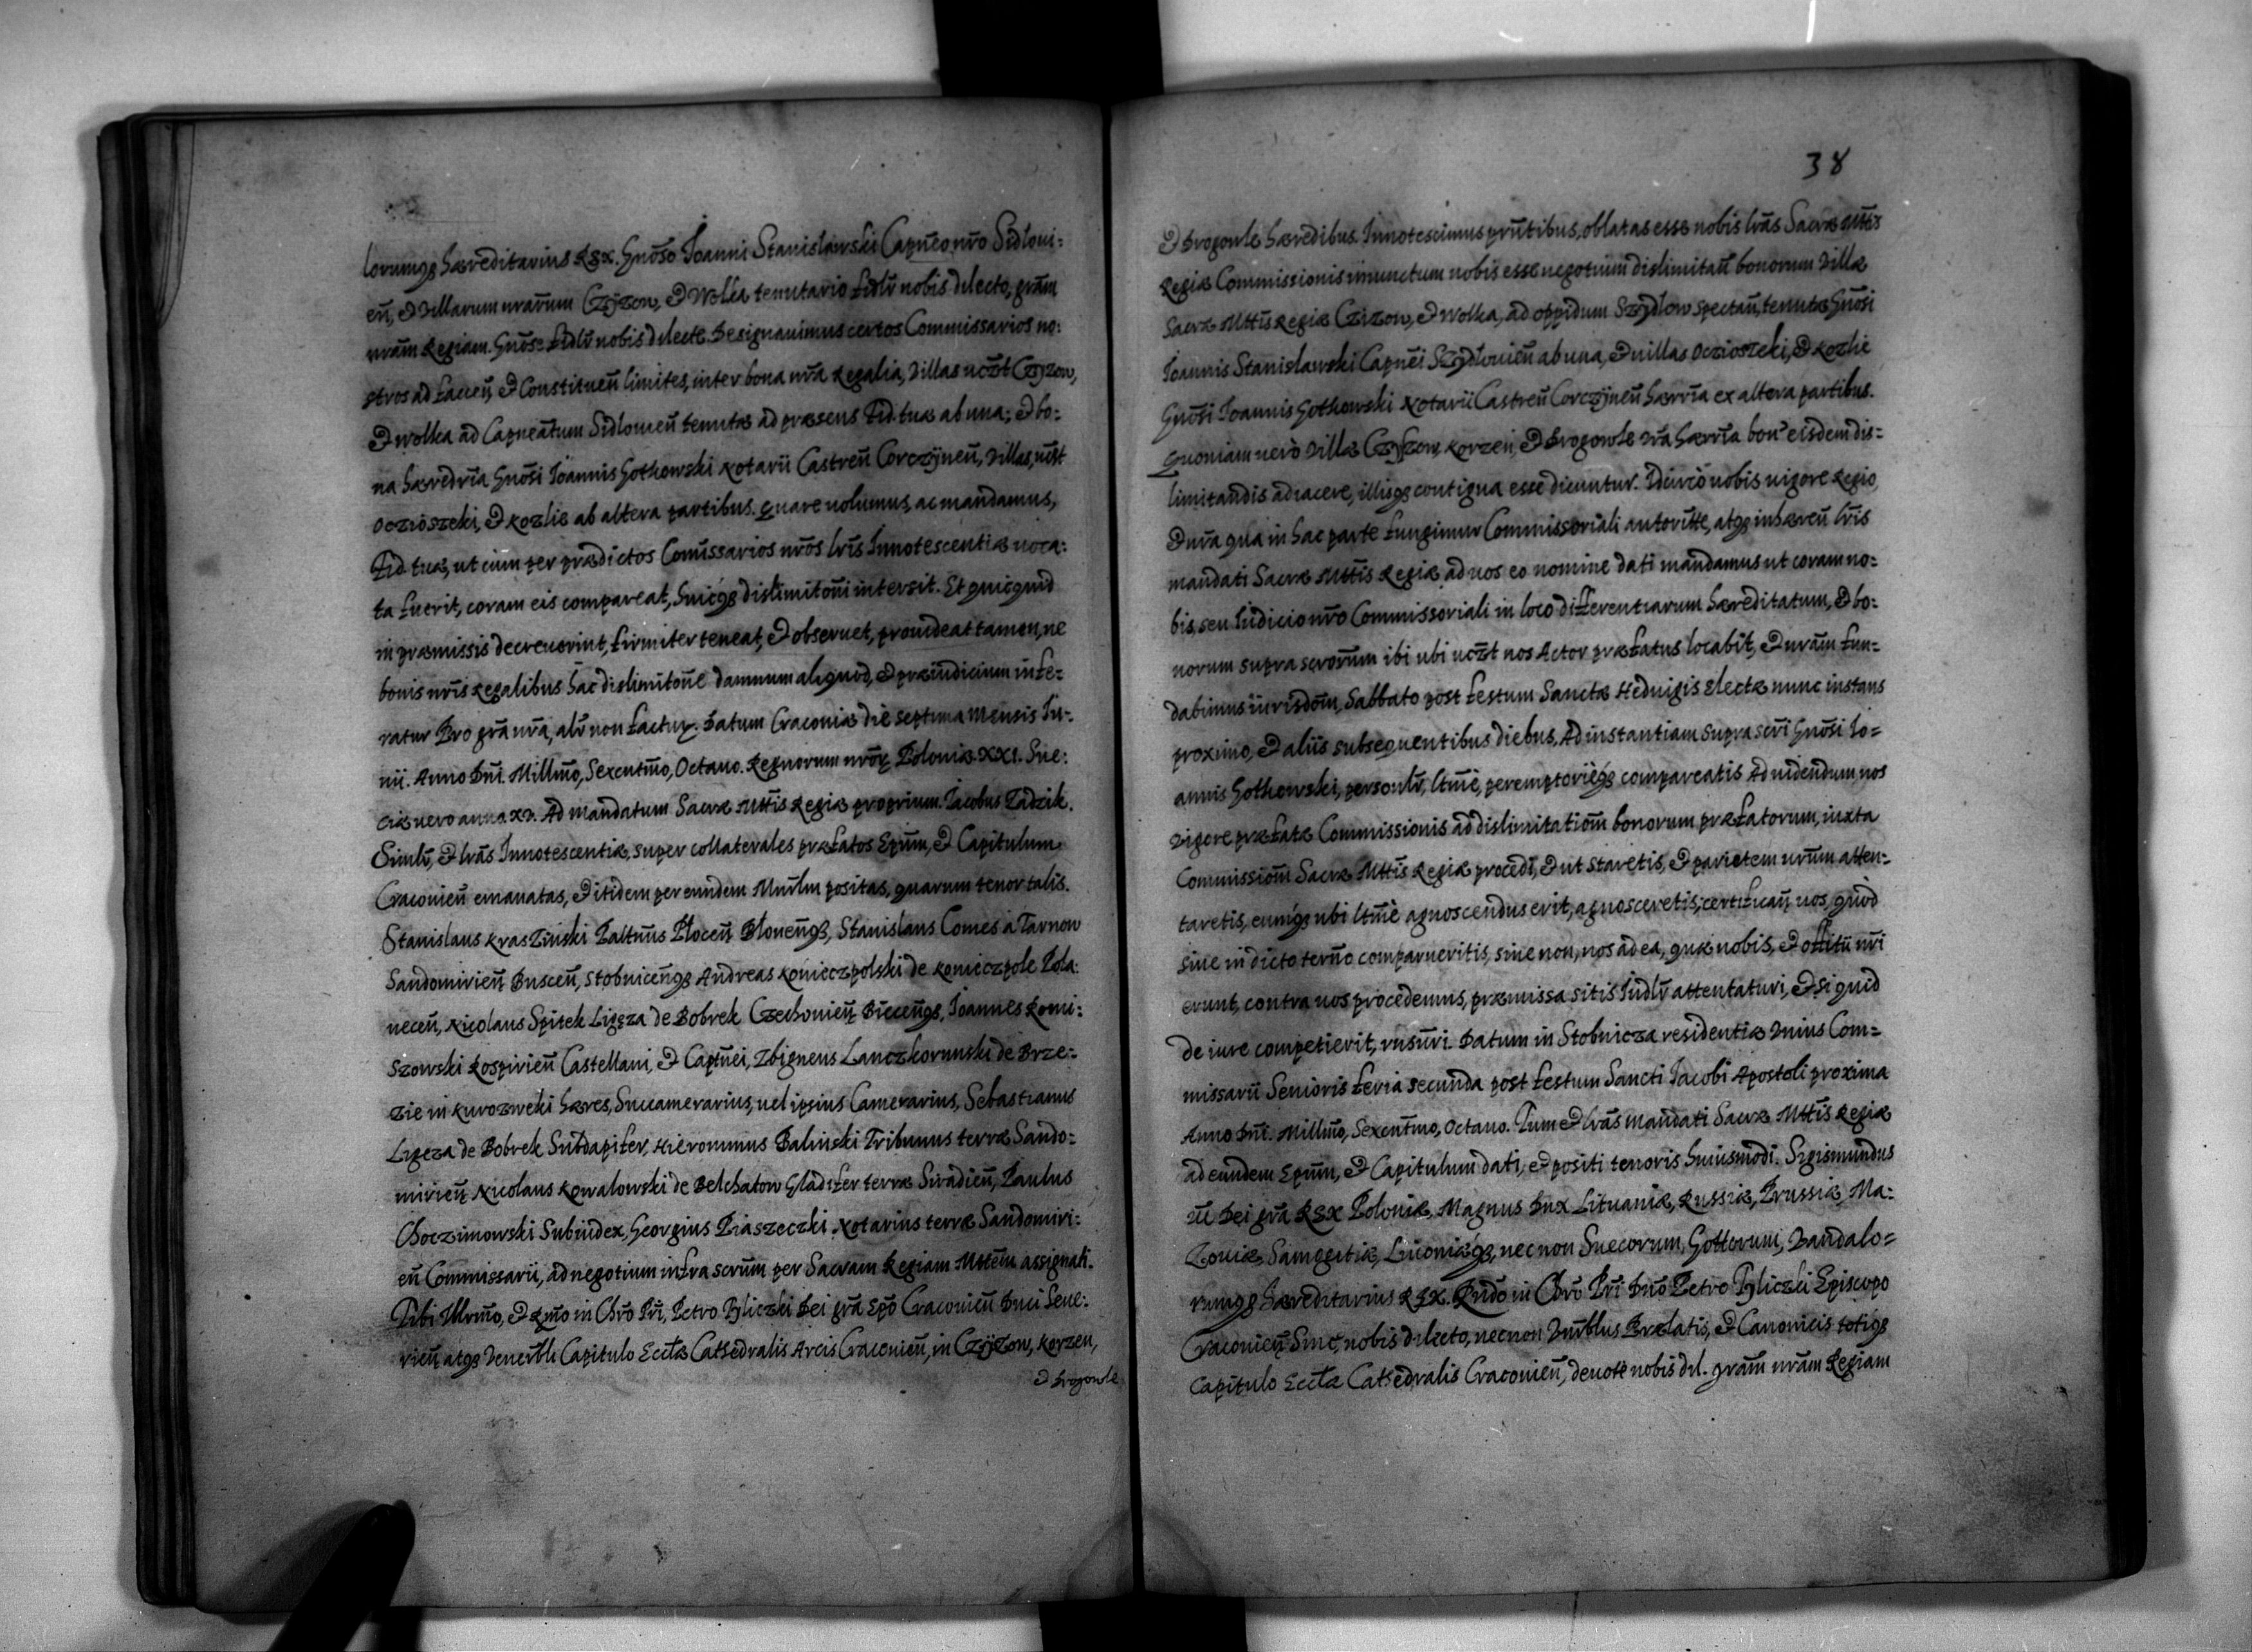 lorumq3 hæreditarius Rex. Gnōso Ioanni Stanisławski Capnēo nrō Sidloui=
eñ, et Villarum nrarūm Czyzow, et Wolka tenutario fidlr̃ nobis dilecto, grām
nrām Regiam. Gnōse fidlr̃ nobis dilecte. Designauimus certos Commissarios no=
stros ad facieñ, et Constitueñ limites, inter bona nrā Regalia, Villas uczt Czyzow,
et Wolka ad Capneātum Sidlouieñ tenutæ ad præsens Fid. tuæ ab una; et bo=
na hæredrīa Gnōsi Ioannis Gothowski Notarii Castreñ Corczyneñ, Villas, uczt
Oczioszeki, et Kozlie ab altera partibus. Quare uolumus, ac mandamus,
Fid. tuæ, ut cum per prædictos Comissarios nrōs lrīs Innotescentiæ uoca=
ta fuerit, coram eis compareat, huicq3 dislimitōni intersit. Et quicquid
in præmissis decreuerint, firmiter teneat, et obseruet, prouideat tamen, ne
bonis nrīs Regalibus hac dislimitōne damnum aliquod, et præiudicium infe=
ratur Pro grā nrā, alr̃ non factur. Datum Cracouiæ die septima Mensis Iu=
nii. Anno Dnī. Millmō, Sexcentmō, Octauo. Regnorum nrōr Poloniæ XXI. Sue=
ciæ uero anno XV. Ad mandatum Sacræ Mttis Regiæ proprium. Iacobus Zadzik.
Simlr̃, et lrās Innotescentiæ, super collaterales præfatos Epūm, et Capitulum
Cracouieñ emanatas, et itidem per eundem Mnrlm positas, quarum tenor talis.
Stanislaus Krasinski Paltnūs Płoceñ Błoneñq3, Stanislaus Comes à Tarnow
Sandomirieñ Busceñ, Stobniceñq3 Andreas Konieczpolski de Konieczpole Pola=
neceñ, Nicolaus Spitek Ligęza de Bobrek Czechouieñ Bieceñq3, Ioannes Komi=
szowski Rospirieñ Castellani, et Captnēi, Zbigneus Lanczkorunski de Brze=
zie in Kurozweki hæres, Succamerarius, uel ipsius Camerarius, Sebastianus
Ligeza de Bobrek Subdapifer, Hieronimus Balinski Tribunus terræ Sando=
mirieñ Nicolaus Kowalowski de Belchatow Gladifer terræ Siradieñ, Paulus
Choczimowski Subiudex, Georgius Piaszeczki Notarius terræ Sandomiri=
eñ Commissarii, ad negotium infra scrūm per Sacram Regiam Mttem assignati.
Tibi Illrmō, et Rmō in Chrō Prī, Petro Tyliczki Dei grā Epō Cracouieñ Duci Seue=
rieñ atq3 Venerbli Capitulo Ecclæ Cathedralis Arcis Cracouieñ, in Czyzow, Korzen,
et Drogowle
38
et Drogowle hæredibus. Innotescimus prntibus, oblatas esse nobis lrās Sacræ Mttis
Regiæ Commissionis iniunctum nobis esse negotium dislimitañ bonorum Villæ
Sacræ Mttis Regiæ Czizow, et Wolka, ad oppidum Szydlow spectañ, tenutæ Gnōsi
Ioannis Stanislawski Capnēi Szydlouieñ ab una, et uillas Oczioszeki, et Kozlie
Gnōsi Ioannis Gothowski Notarii Castreñ Corczyneñ hærrīa ex altera partibus.
Quoniam uerò Villæ Czyszow, Korzen, et Drogowle vrā hærrīa bonis eisdem dis=
limitandis adiacere, illisq3 contigua esse dicuntur. Idcircò uobis uigore Regio,
et nrā qua in hac parte fungimur Commissoriali autoritte, atq3 inhæreñ lrīs
mandati Sacræ Mttis Regiæ, ad uos eo nomine dati mandamus ut coram no=
bis, seu Iudicio nrō Commissoriali in loco differentiarum hæreditatum, et bo=
norum supra scrōrum ibi ubi uczt nos Actor præfatus locabit, et nrām fun=
dabimus iurisdōm, Sabbato post festum Sanctæ Heduigis Electæ nunc instans
proximo, et aliis subsequentibus diebus, Ad instantiam supra scrī Gnōsi Io=
annis Gothowski, personlr̃, ltmè, peremptorièq3 compareatis Ad uidendum, nos
vigore præfatæ Commissionis ad dislimitatiōm bonorum præfatorum, iuxta
Commissiōm Sacræ Mttis Regiæ procedī, et ut staretis, et parietem urūm atten=
taretis, eumq3 ubi ltmè agnoscendus erit, agnosceretis, certificañ uos, quòd
siue in dicto ternō comparueritis, siue non, nos ad ea, quæ nobis, et officii nrī
erunt, contra uos procedemus, præmissa sitis Iudlr̃ attentaturi, et si quid
de iure competierit, visuri. Datum in Stobnicza residentiæ Vnius Com=
missarii Senioris feria secunda post festum Sancti Iacobi Apostoli proxima
Anno Dnī. Millmō, Sexcentmō, Octauo. Tum et lrās mandati Sacræ Mttis Regiæ
ad eundem Epūm, et Capitulum dati, et positi tenoris huiusmodi. Sigismundus
IIĪ Dei grā Rex Poloniæ, Magnus Dux Lituaniæ, Russiæ, Prussiæ, Ma=
zouiæ, Samogitiæ, Liuoniæq3, necnon Suecorum, Gottorum, Vandalo=
rumq3 hæreditarius Rex. Rndō in Chrō Prī Dnō Petro Tyliczki Episcopo
Cracouieñ Sincè nobis dilecto, necnon Vnrblbus Prælatis, et Canonicis totiq3
Capitulo Ecclæ Cathedralis Cracouieñ, deuotè nobis dil. grām nrām Regiam